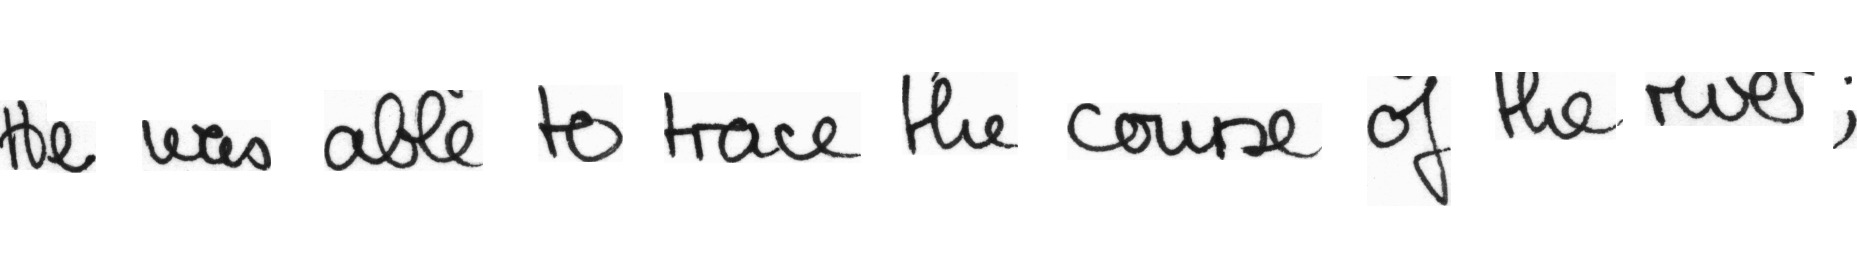 He was able to trace the course of the river ;